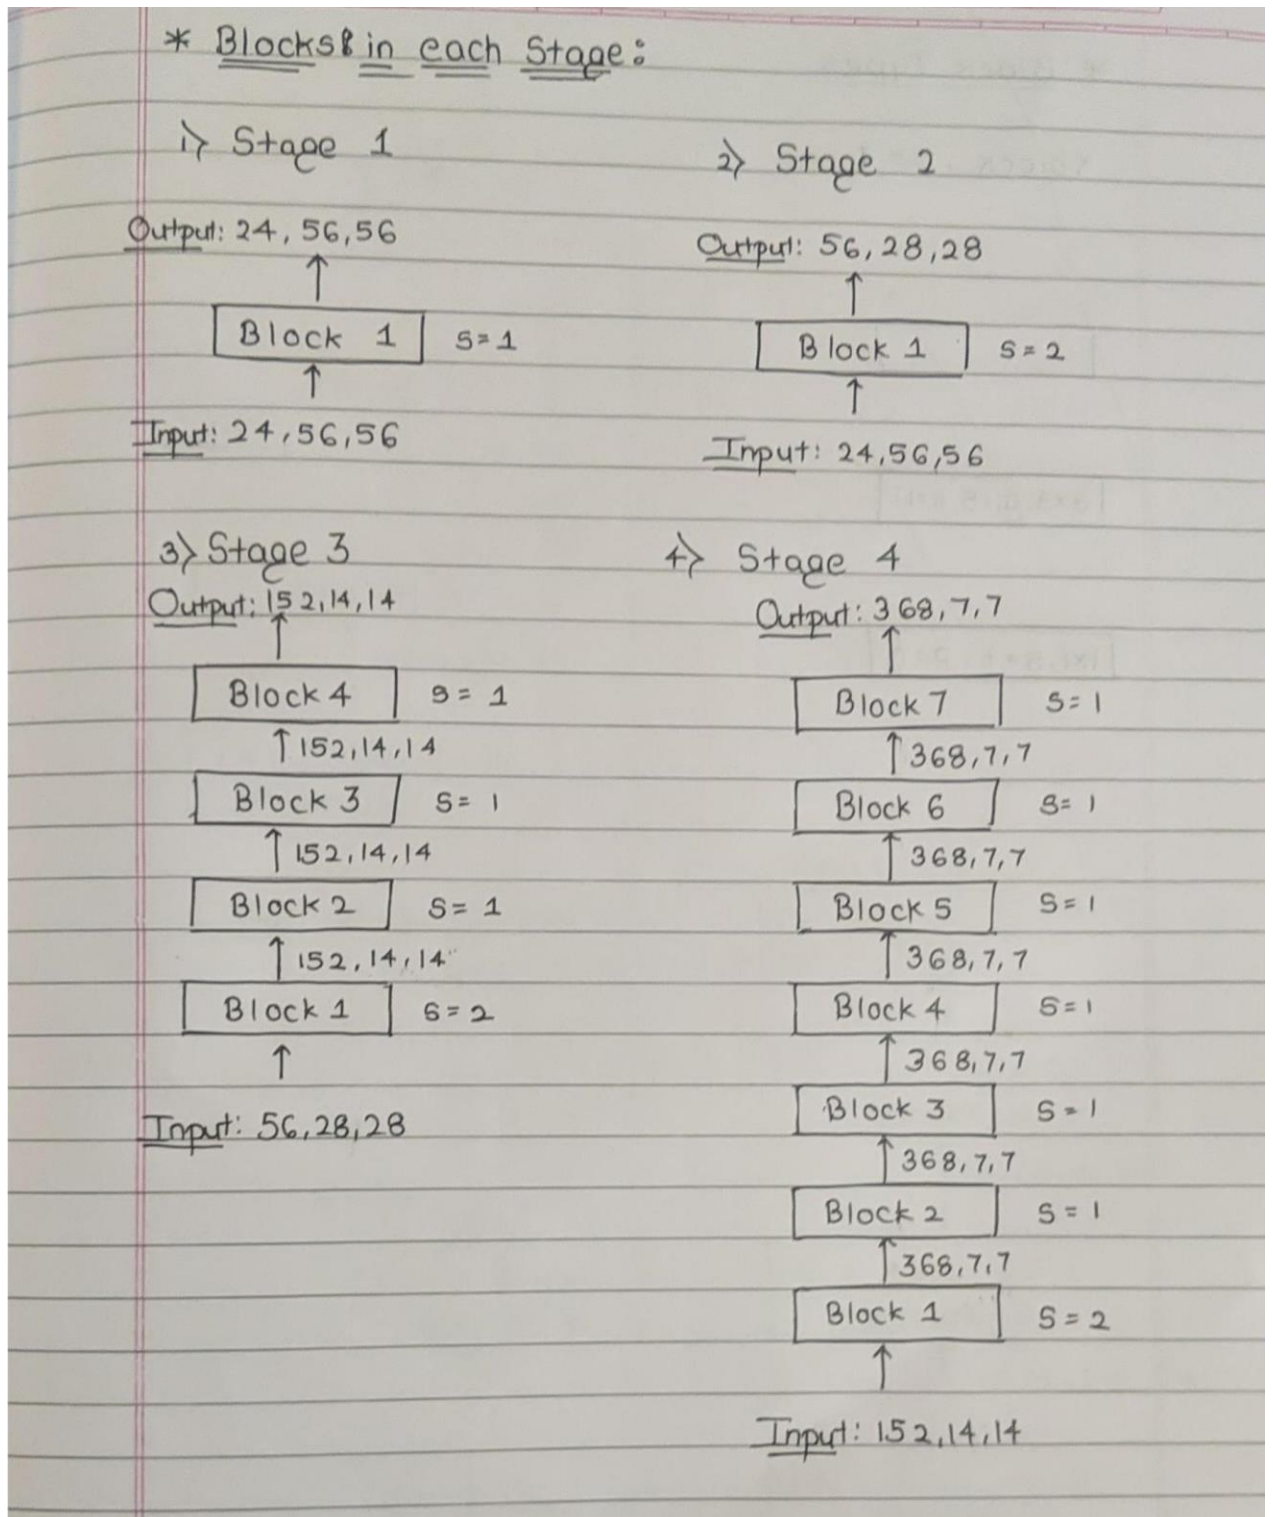 * Blocks in each Stage:
1> Stage 1
Output: 24, 56,56
Block 1 S=1
Input: 24,56,56
2> Stage 2
Output: 56, 28,28
Block 1 S=2
Input: 24,56,56
3> Stage 3
Output: 152,14,14
Block 4 S=1
152,14,14
Block 3 S=1
152,14,14
Block 2 S=1
152,14,14
Block 1 S=2
Input: 56,28,28
4> Stage 4
Output: 368,7,7
Block 7 S=1
368,7,7
Block 6 S=1
368,7,7
Block 5 S=1
368,7,7
Block 4 S=1
368,7,7
Block 3 S=1
368,7,7
Block 2 S=1
368,7,7
Block 1 S=2
Input: 152,14,14